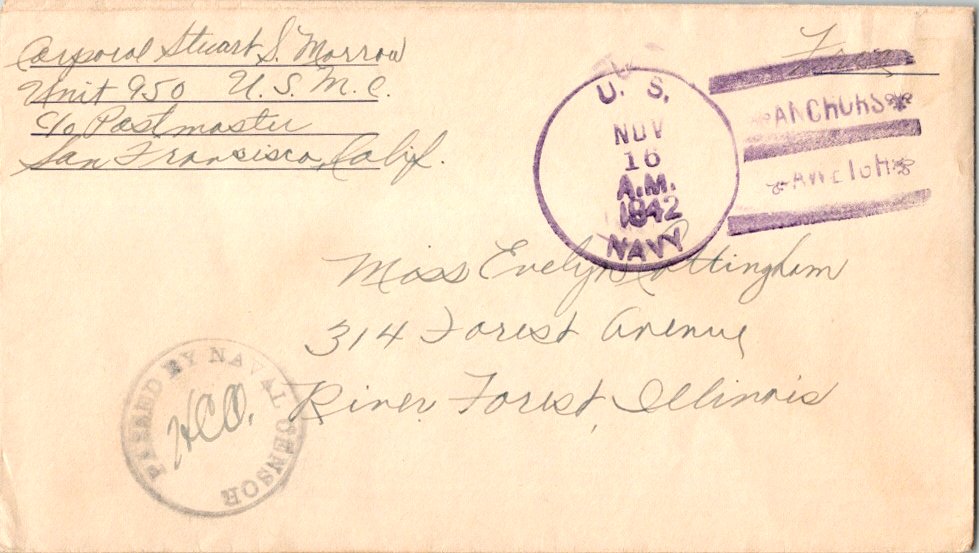 Corporal Stuart S. Morrow
Unit 950 U. S. M. C.
c/o Postmaster
San Francisco, Calif.
Free
U. S.
NOV
16
A.M.
1942
NAVY
ANCHORS
AWEIGH
Miss Evelyn Cottingham
314 Forest Avenue
River Forest, Illinois
PASSED BY NAVAL CENSOR
HCO.